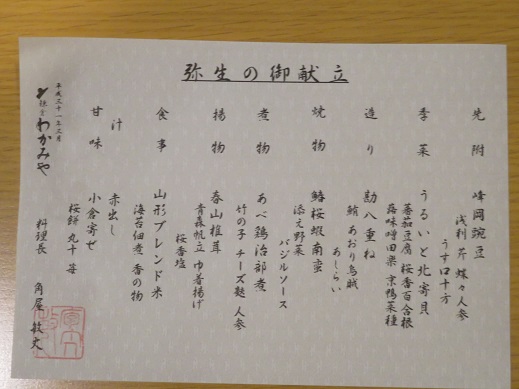 弥生の御献立
先附
峰岡豌豆
うす口十方
浅利 芹 蝶々人参
季菜
うるいと北寄貝
蕃茄豆腐 桜香百合根
蕗味噌田楽 京鴨菜種
造り
勘八重ね
あしらい
鮪 あおり烏賊
焼物
鰆桜蝦南蛮
添え野菜
バジルソース
煮物
あべ鶏治部煮
竹の子 チーズ麩 人参
揚物
春山椎茸
青森帆立 巾着揚げ
桜香塩
食事
山形ブレンド米
海苔佃煮 香の物
汁
赤出し
甘味
小倉寄せ
桜餅 丸十 苺
平成三十一年三月
わかみや
料理長 角屋 敏文